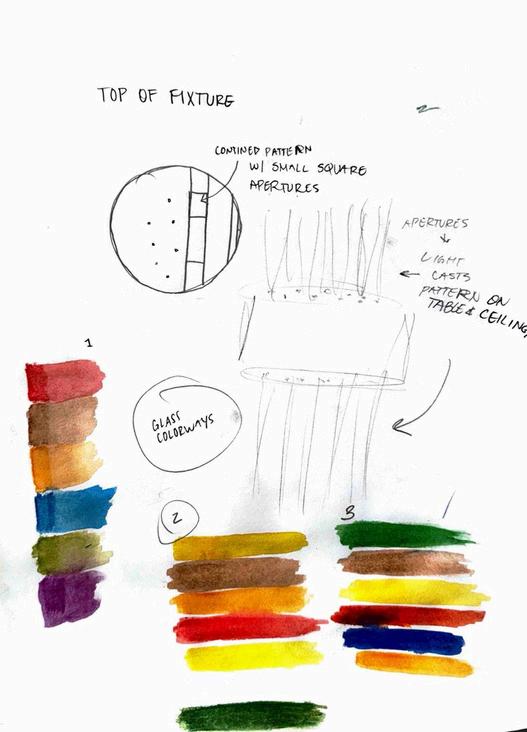 TOP OF FIXTURE
CONTINED PATTERN
W/ SMALL SQUARE
APERTURES
APERTURES
LIGHT
CASTS
PATTERN ON
TABLE & CEILING
1
GLASS
COLORWAYS
2
3